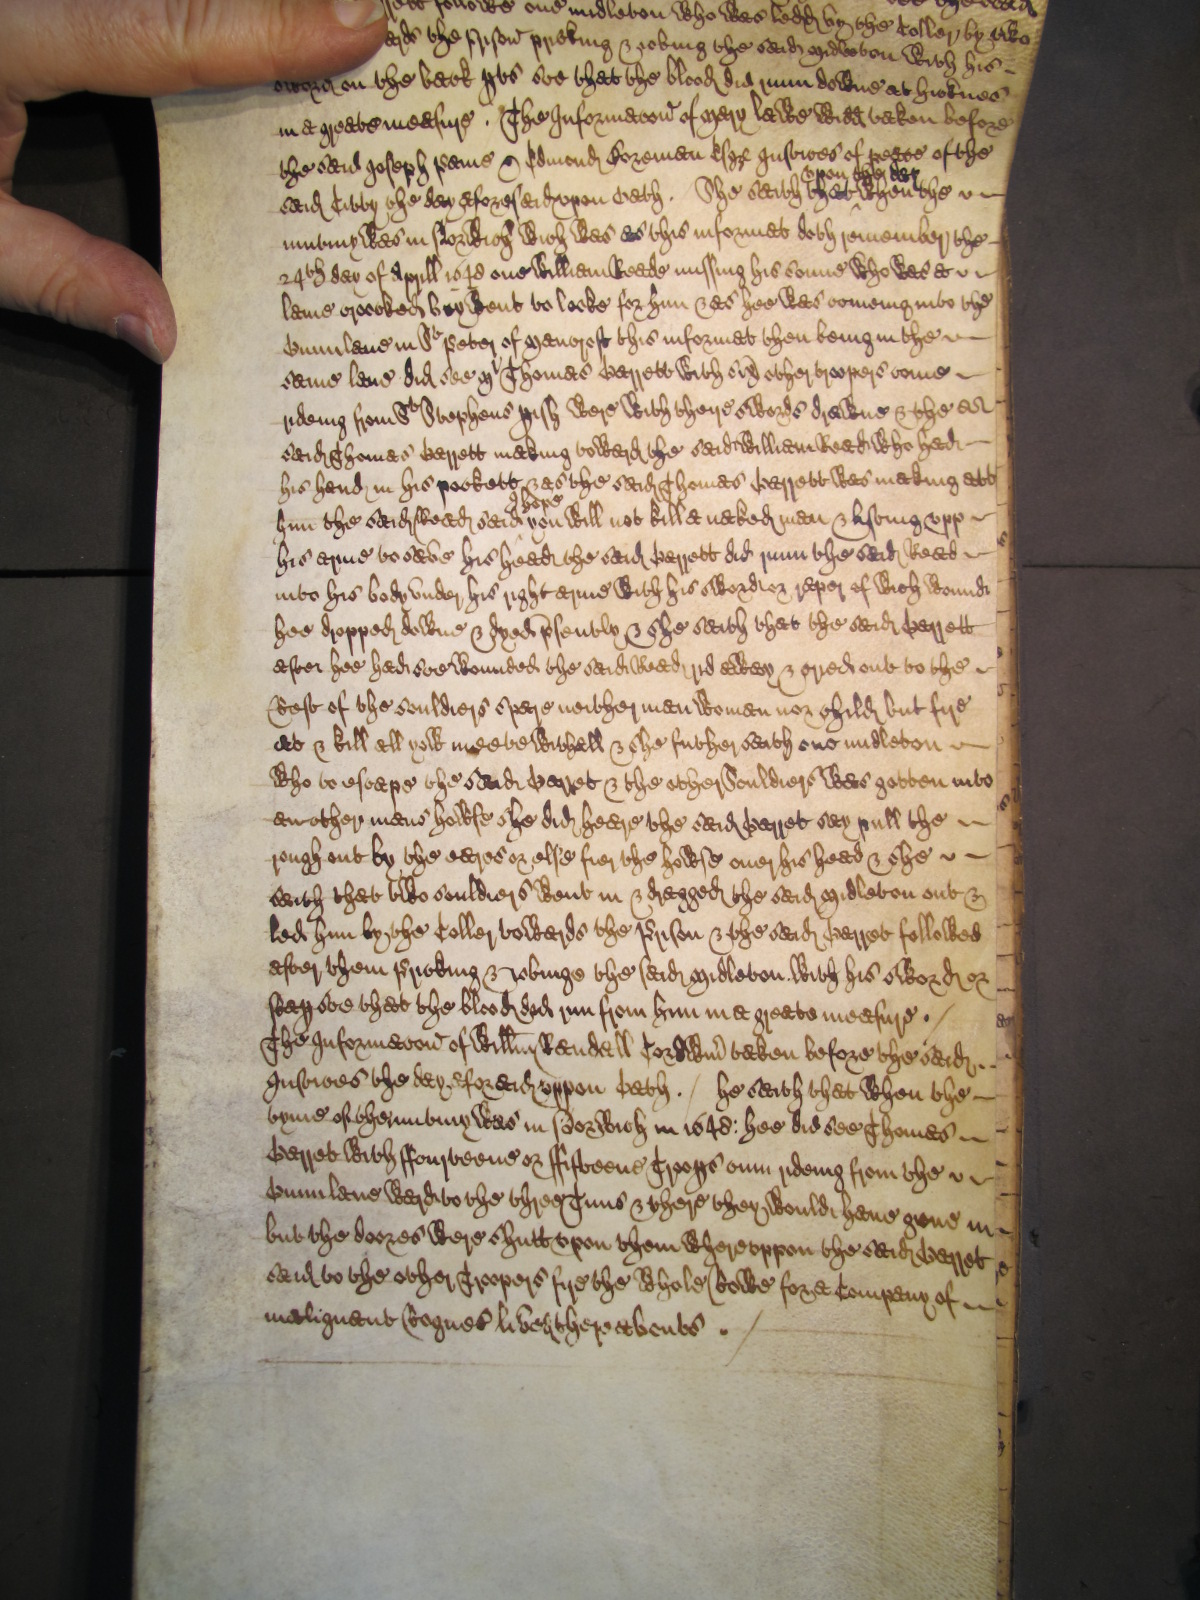 followe one midleton who was ledd by the Coller by two
the prison pricking & jobing the said Midleton with his
sword on the back pts soe that the blood did runn downe at his knees
in a greate measure . The Informacon of Mary Lawe widd taken before
the said Joseph Paine & Edmond Boreman Esqr Justices of peace of the
said Citty the day aforesaid upon Oath . / She saith that upon the day when the
mutiny was in Norwich wich was as this informat doth remember the
24th day of Aprill 1648 one William Reade missing his sonne who was a
lame crooked boy went to looke for him & as hee was comeing into the
lane in St Peter of Mancroft this informat then being in the
same lane did see Mr Thomas Parrett with other troopers come
rideing from St Stephens pish were with there swords drawne & the
said Thomas Barrett making toward the said William Read who had
his hand in his pockett & as the said Thomas Barrett was making att
him the said Read said I hope you will not kill a naked man & listing upp
his arme to save his head the said Barrett did runn the said Read
into his body under his right arme with his sword or raper of wich wound
hee dropped downe & dyed psently & she saith that the said Barrett
after hee had soe wounded the said Read rid away & cryed out to the
Rest of the souldiers spare neither man woman nor child but fyre
at & kill all yow meete withall & she futher saith one midleton
who to escape the said Barret & the other Souldiers was gotten into
another mans howse she did heare the said Barret say pull the
rough out by the eares or else fier the howse over his head & she
saith that two souldiers went in & dragged the said Midleton out &
ledd him by the Coller towards the Prison & the said Barret followed
after them Pricking & jobinge the said Midleton with his sword or
rap soe that the blood did run from him in a greate measure . /
The Informacon of Willm Randall Cordwinr taken before the said
Justices the day aforesaid uppon Oath . / he saith that when the
tyme of the mutiny was in Norwich in 1648: hee did see Thomas
Barret with ffourteene or ffifteene Troops rideing from the
lane ward to the three Tuns & there they would have gone in
but the doores were shutt upon them whereuppon the said Barret
said to the other Troopers fyre the whole Rowe for a Company of
malignant Rogues liveth thereabouts . /